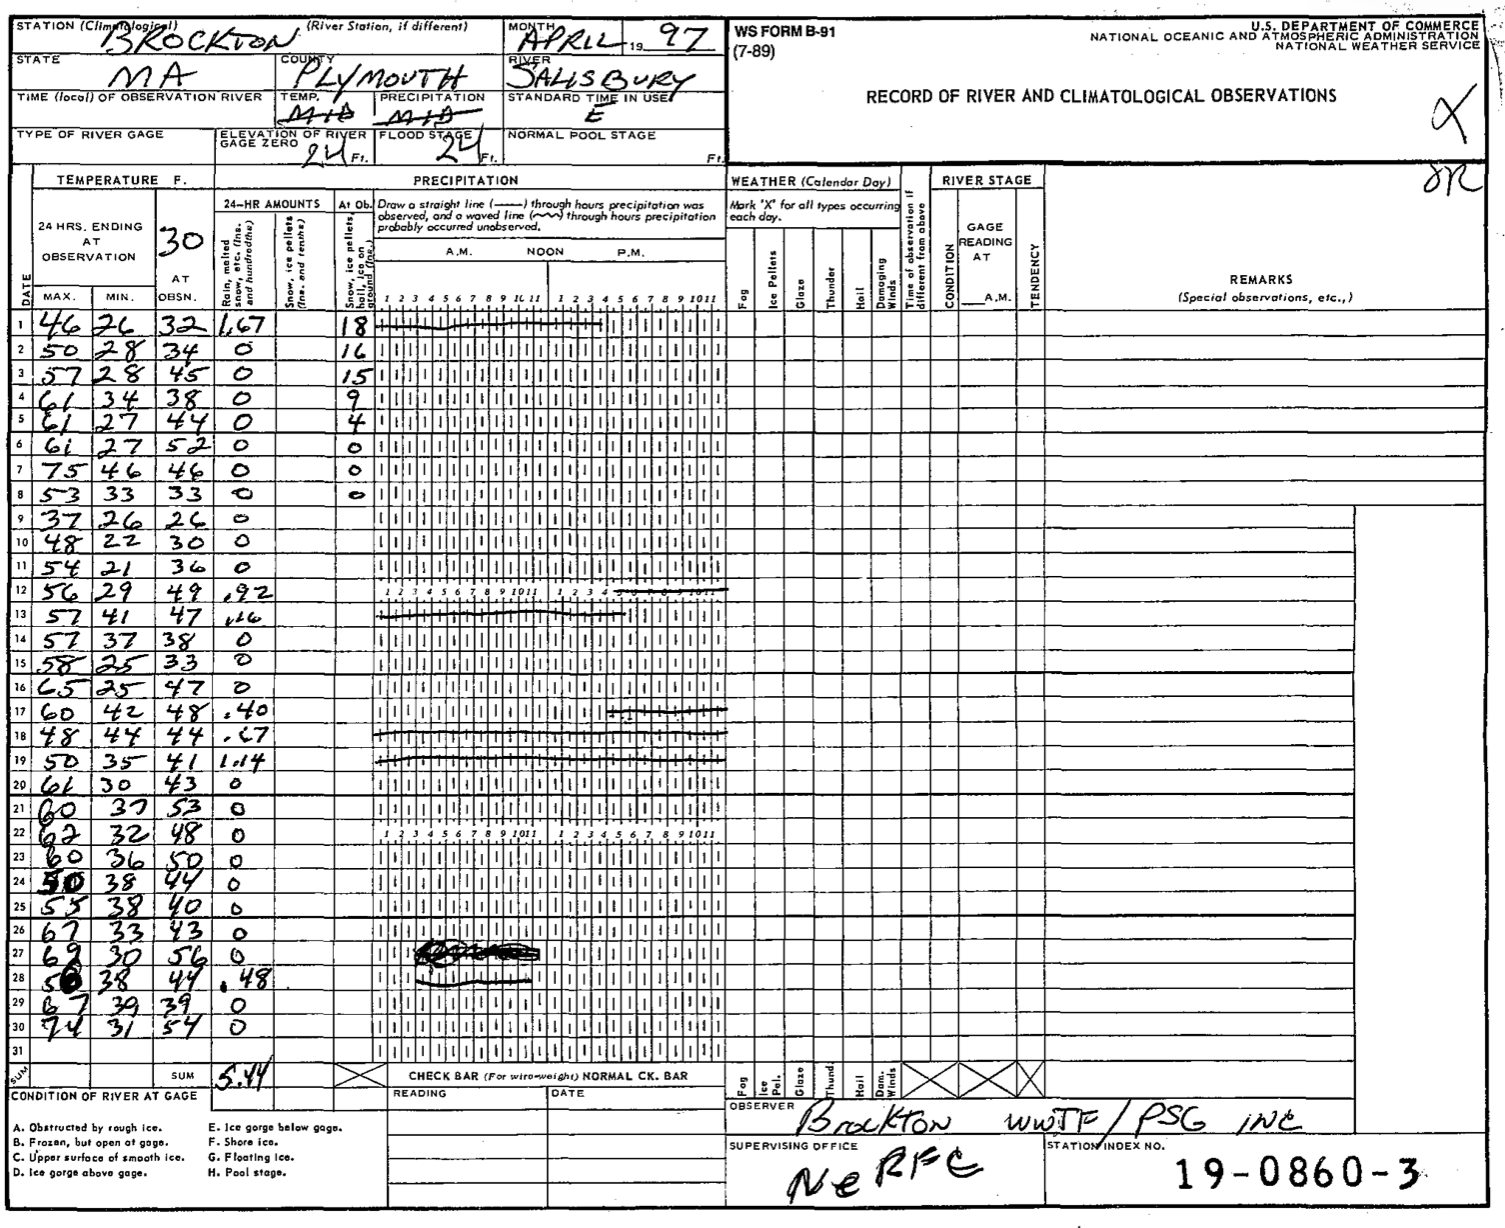 STATION (Climatological) (River Station, if different) MONTH WS FORM B-91 U.S. DEPARTMENT OF COMMERCE
BROCKTON APRIL 19 97 (7-89) NATIONAL OCEANIC AND ATMOSPHERIC ADMINISTRATION
NATIONAL WEATHER SERVICE
STATE COUNTY RIVER
MA PLYMOUTH SALISBURY
RECORD OF RIVER AND CLIMATOLOGICAL OBSERVATIONS
TIME (local) OF OBSERVATION RIVER TEMP. PRECIPITATION STANDARD TIME IN USE
MID MID E
TYPE OF RIVER GAGE ELEVATION OF RIVER GAGE ZERO 24 Ft. FLOOD STAGE 24 Ft. NORMAL POOL STAGE Ft.
TEMPERATURE F. PRECIPITATION WEATHER (Calendar Day) RIVER STAGE
24 HRS. ENDING AT OBSERVATION 30 AT OBSN. 24-HR AMOUNTS At Ob. Draw a straight line (——) through hours precipitation was observed, and a waved line (~~) through hours precipitation probably occurred unobserved. Mark 'X' for all types occurring each day.
DATE MAX. MIN. Rain, melted snow, etc. (Ins. and hundredths) Snow, ice pellets (Ins. and tenths) Snow, ice pellets, hail, ice on ground (Ins.) A.M. NOON P.M. Fog Ice Pellets Glaze Thunder Hail Damaging Winds Time of observation if different from above CONDITION GAGE READING AT A.M. TENDENCY REMARKS (Special observations, etc.,)
1 2 3 4 5 6 7 8 9 10 11 1 2 3 4 5 6 7 8 9 10 11
1 46 26 32 1.67 18
2 50 28 34 0 16
3 57 28 45 0 15
4 61 34 38 0 9
5 61 27 44 0 4
6 61 27 52 0 0
7 75 46 46 0 0
8 53 33 33 0 0
9 37 26 26 0
10 48 22 30 0
11 54 21 36 0
12 56 29 49 .92 1 2 3 4 5 6 7 8 9 10 11 1 2 3 4 5 6 7 8 9 10 11
13 57 41 47 .16
14 57 37 38 0
15 58 25 33 0
16 65 25 47 0
17 60 42 48 .40
18 48 44 44 .67
19 50 35 41 1.14
20 61 30 43 0
21 60 37 53 0
22 62 32 48 0 1 2 3 4 5 6 7 8 9 10 11 1 2 3 4 5 6 7 8 9 10 11
23 60 36 50 0
24 50 38 44 0
25 55 38 40 0
26 67 33 43 0
27 69 30 56 0
28 38 44 .48
29 67 39 39 0
30 74 31 54 0
31
SUM SUM 5.44 CHECK BAR (For wire-weight) NORMAL CK. BAR Fog Ice Pel. Glaze Thund. Hail Dam. Winds
CONDITION OF RIVER AT GAGE READING DATE OBSERVER
Brockton WWTF / PSG INC
A. Obstructed by rough ice. E. Ice gorge below gage.
B. Frozen, but open at gage. F. Shore ice.
C. Upper surface of smooth ice. G. Floating ice.
D. Ice gorge above gage. H. Pool stage.
SUPERVISING OFFICE STATION INDEX NO.
NeRFC 19-0860-3